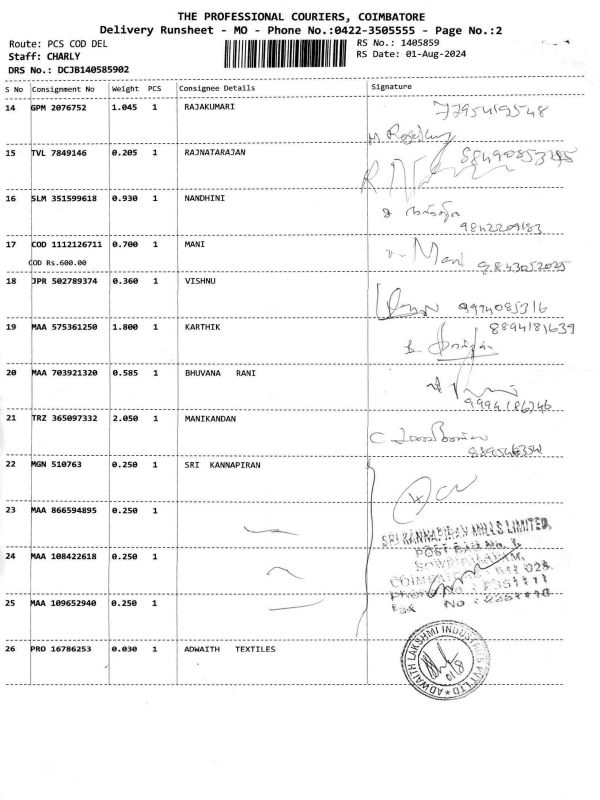 THE PROFESSIONAL COURIERS, COIMBATORE
Delivery Runsheet - MO - Phone No.:0422-3505555 - Page No.:2
Route: PCS COD DEL
RS No.: 1405859
Staff: CHARLY
RS Date: 01-Aug-2024
DRS No.: DCJB140585902
S No Consignment No Weight PCS Consignee Details Signature
14 GPM 2076752 1.045 1 RAJAKUMARI
15 TVL 7849146 0.205 1 RAJNATARAJAN
16 SLM 351599618 0.930 1 NANDHINI
9842209183
17 COD 1112126711 0.700 1 MANI Mani
COD Rs.600.00 9843052025
18 JPR 502789374 0.360 1 VISHNU
9994085316
19 MAA 575361250 1.800 1 KARTHIK 8894181639
20 MAA 703921320 0.585 1 BHUVANA RANI
9994186246
21 TRZ 365097332 2.050 1 MANIKANDAN
22 MGN 510763 0.250 1 SRI KANNAPIRAN
23 MAA 866594895 0.250 1
SRI KANNAPIRAN MILLS LIMITED,
POST BAG No. 1,
24 MAA 108422618 0.250 1
SOWRIPALAYAM,
COIMBATORE - 641 028.
Phone No : 2351111
25 MAA 109652940 0.250 1
Fax No : 2351110
26 PRO 16786253 0.030 1 ADWAITH TEXTILES
ADWAITH LAKSHMI INDUSTRIES PVT LTD
01/8